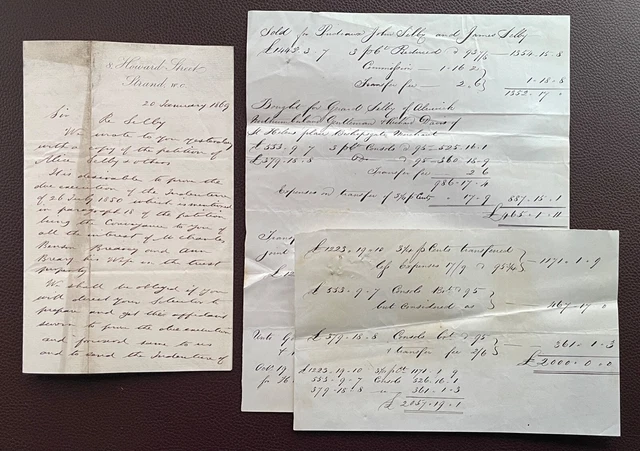 8, Howard Street
Strand, W.C.
20 January 1869
Sir
Re Selby
We wrote to you yesterday
with a copy of the petition of
Alice Selby & others
It is desirable to prove the
due execution of the Indenture
of 26 July 1850 which is mentioned
in paragraph 18 of the petition
being the Conveyance to you of
all the interest of
Breary and Ann
Breary his Wife in the trust
property
We shall be obliged if you
will direct your Solicitor to
prepare and get the affidavit
sworn to prove the due execution
and forward same to us
and to send the Indenture of
Sold for Prideaux John Selby and James Selby
£1442-3-7 3 p Ct Reduced @ 93 7/8 — 1354-15-8
Commission — 1-16-2
Transfer fee — 2-6
1-18-8
1352-17-0
Bought for Selby of Alnwick
Gentleman & Richard of
St Helens place Bishopsgate Merchant
£553-9-7 3 p Ct Consols @ 95 — 525-16-1
£379-18-8 do @ 95 — 360-18-9
Transfer fee 2-6
886-17-4
Expenses on transfer of 3 1/4 p Cents 17-9
887-15-1
£465-1-11
£1223-19-10 3 1/4 p Cents transferred
less Expenses 17/9 @ 95 3/4 — 1171-1-9
£553-9-7 Consols Bot @ 95
but Considered as — 467-17-0
£379-18-8 Consols bot @ 95
& transfer fee 2/6 — 361-1-3
£2000-0-0
£1223-19-10 3 1/4 p Ct 1171-1-9
553-9-7 Consols 525-16-1
379-18-8 — 361-1-3
£2057-19-1